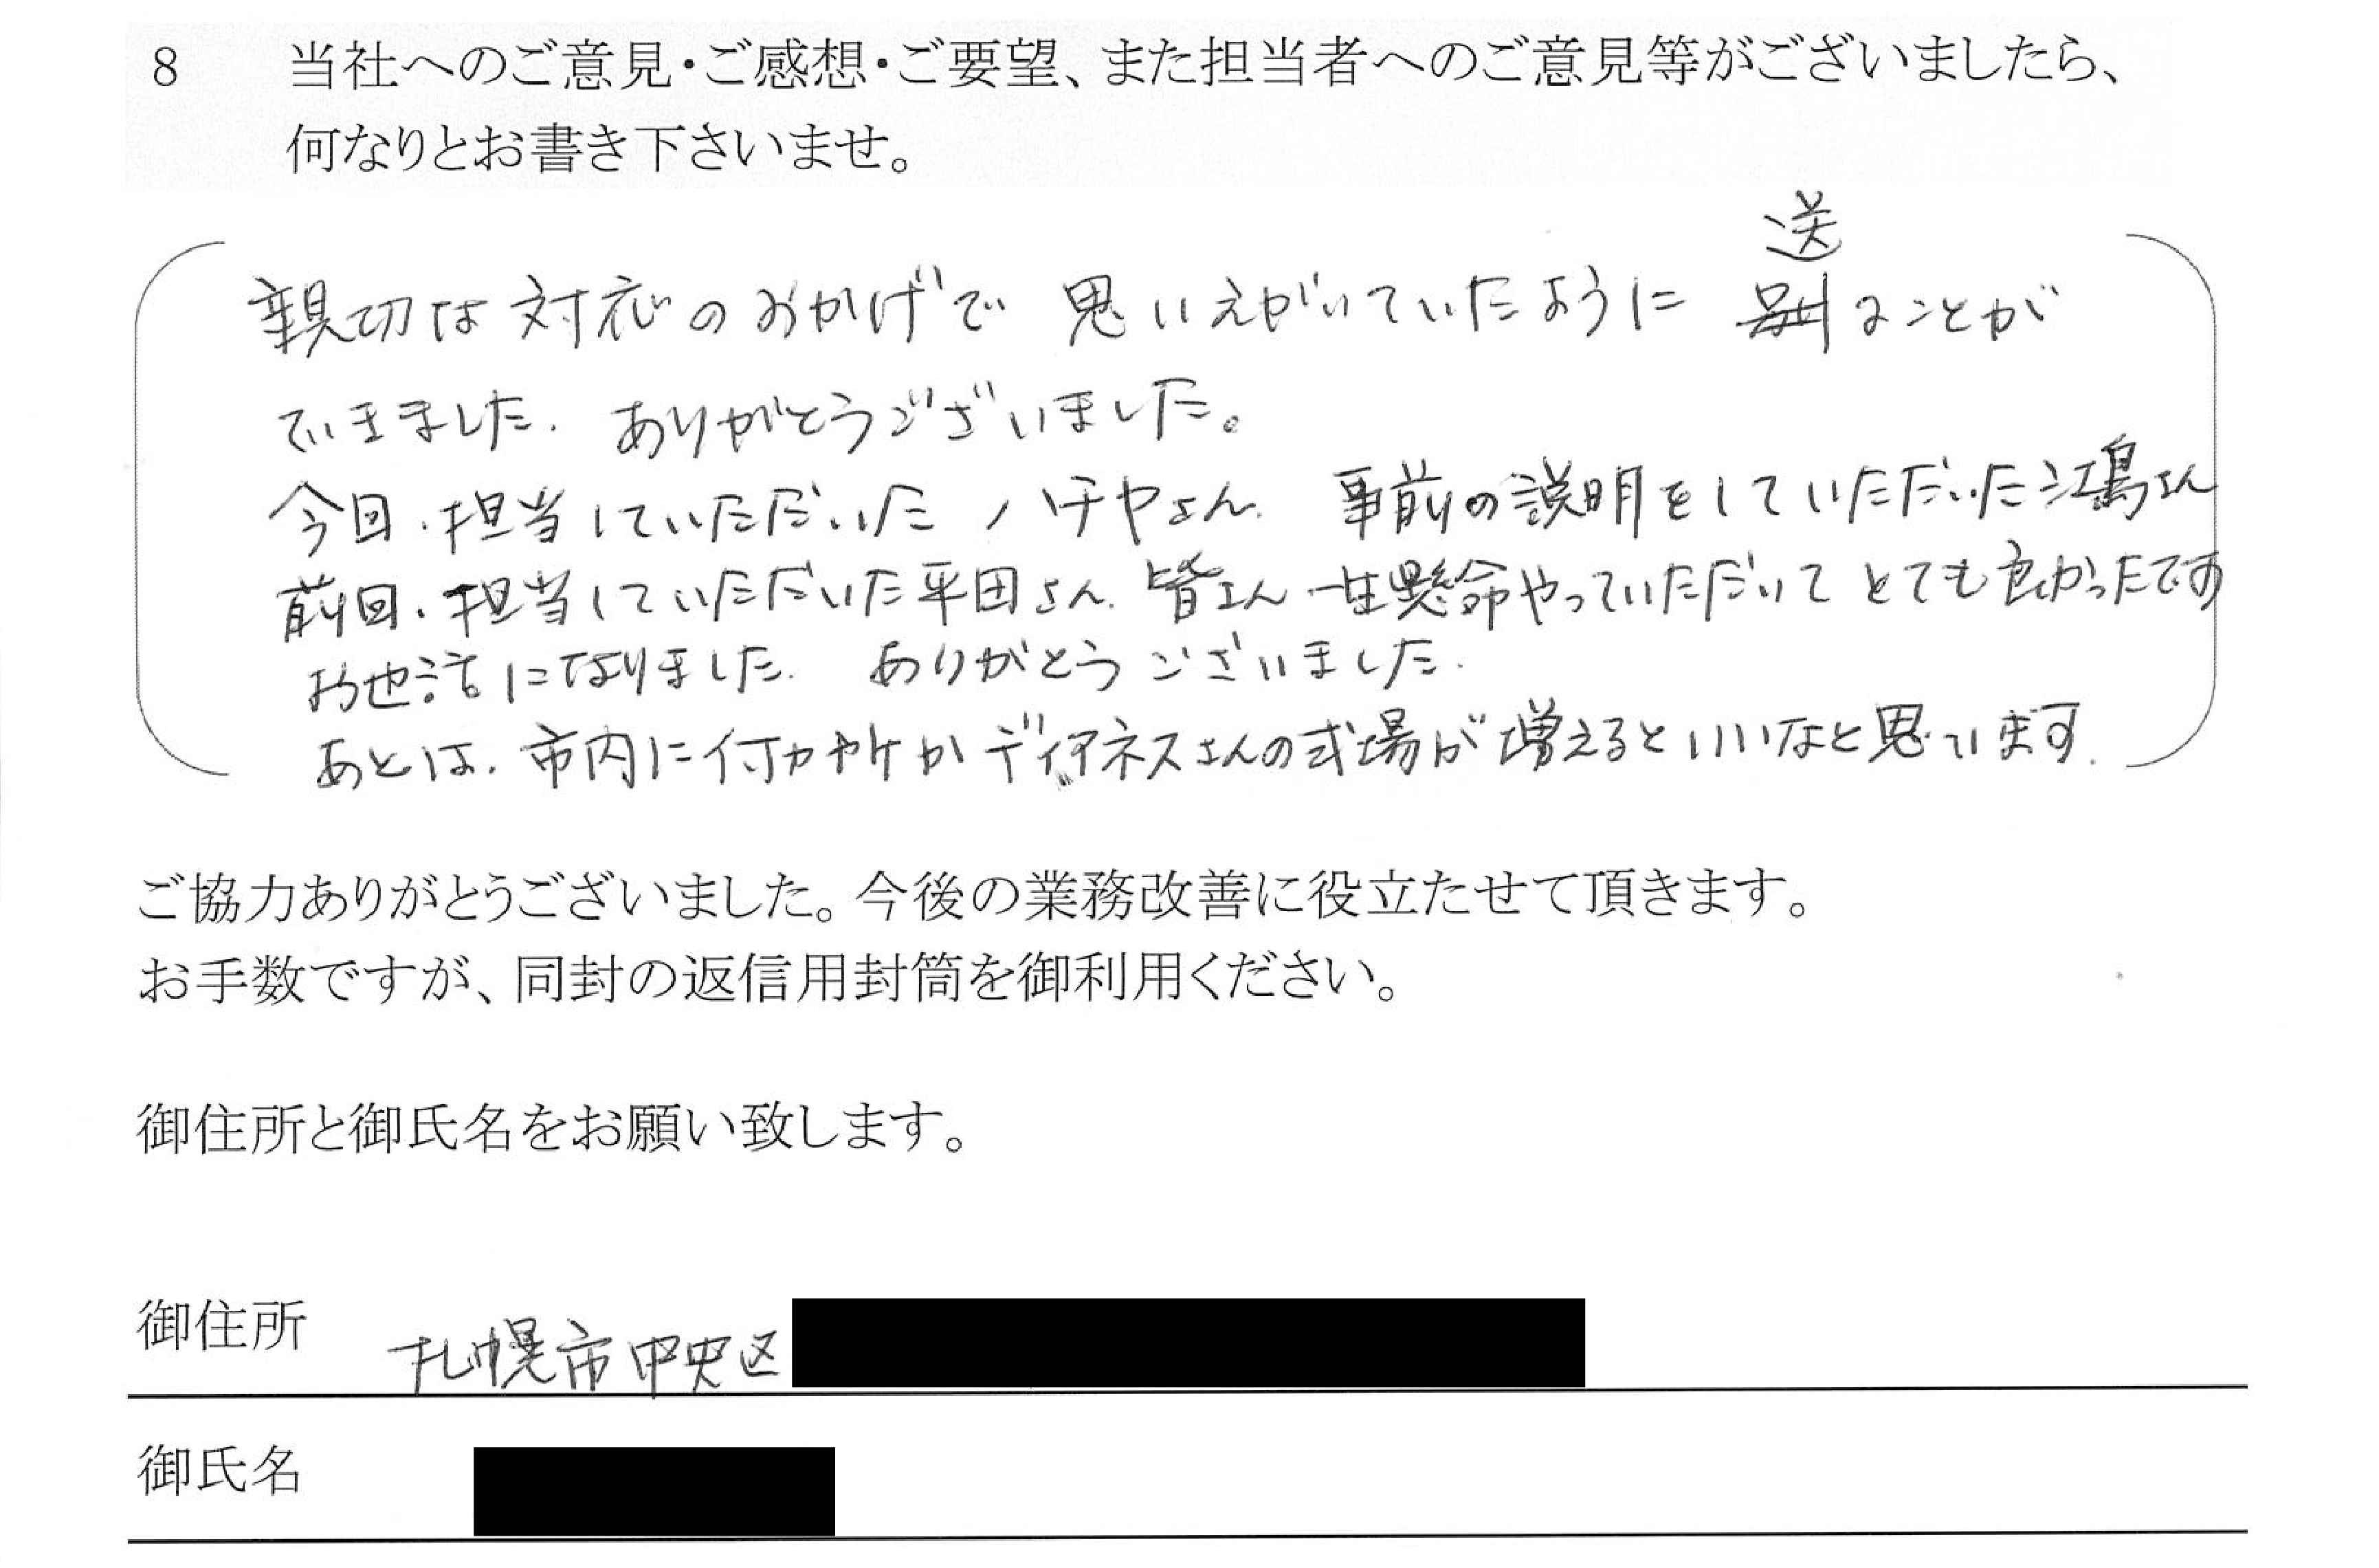 8 当社へのご意見・ご感想・ご要望、また担当者へのご意見等がございましたら、
何なりとお書き下さいませ。
送
親切な対応のおかげで 思いえがいていたように ることが
できました. ありがとうございました。
今回、担当していただいた ハチヤさん. 事前の説明をしていただいた江島さん
前回、担当していただいた平田さん. 皆さん 一生懸命やっていただいて とても良かったです
お世話になりました. ありがとうございました.
あとは、市内に何カヶ所か ディアネスさんの式場が増えるといいなと思います.
ご協力ありがとうございました。今後の業務改善に役立たせて頂きます。
お手数ですが、同封の返信用封筒を御利用ください。
御住所と御氏名をお願い致します。
御住所 札幌市中央区
御氏名